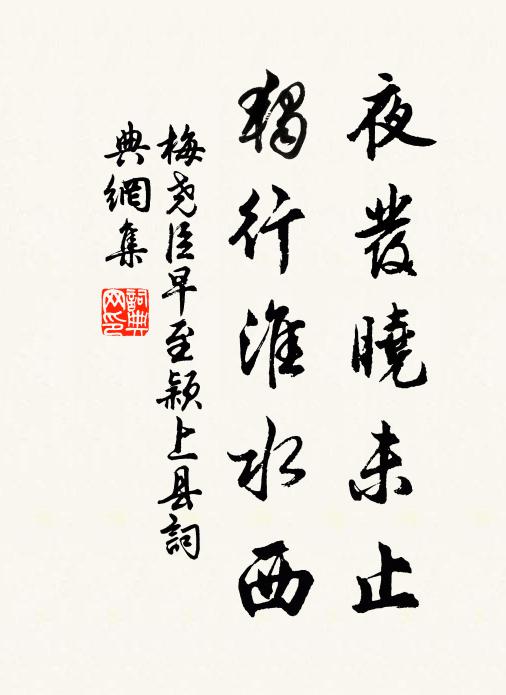 夜發曉未止
獨行淮水西
梅尧臣早至颍上县詞
典網集
詞典网印